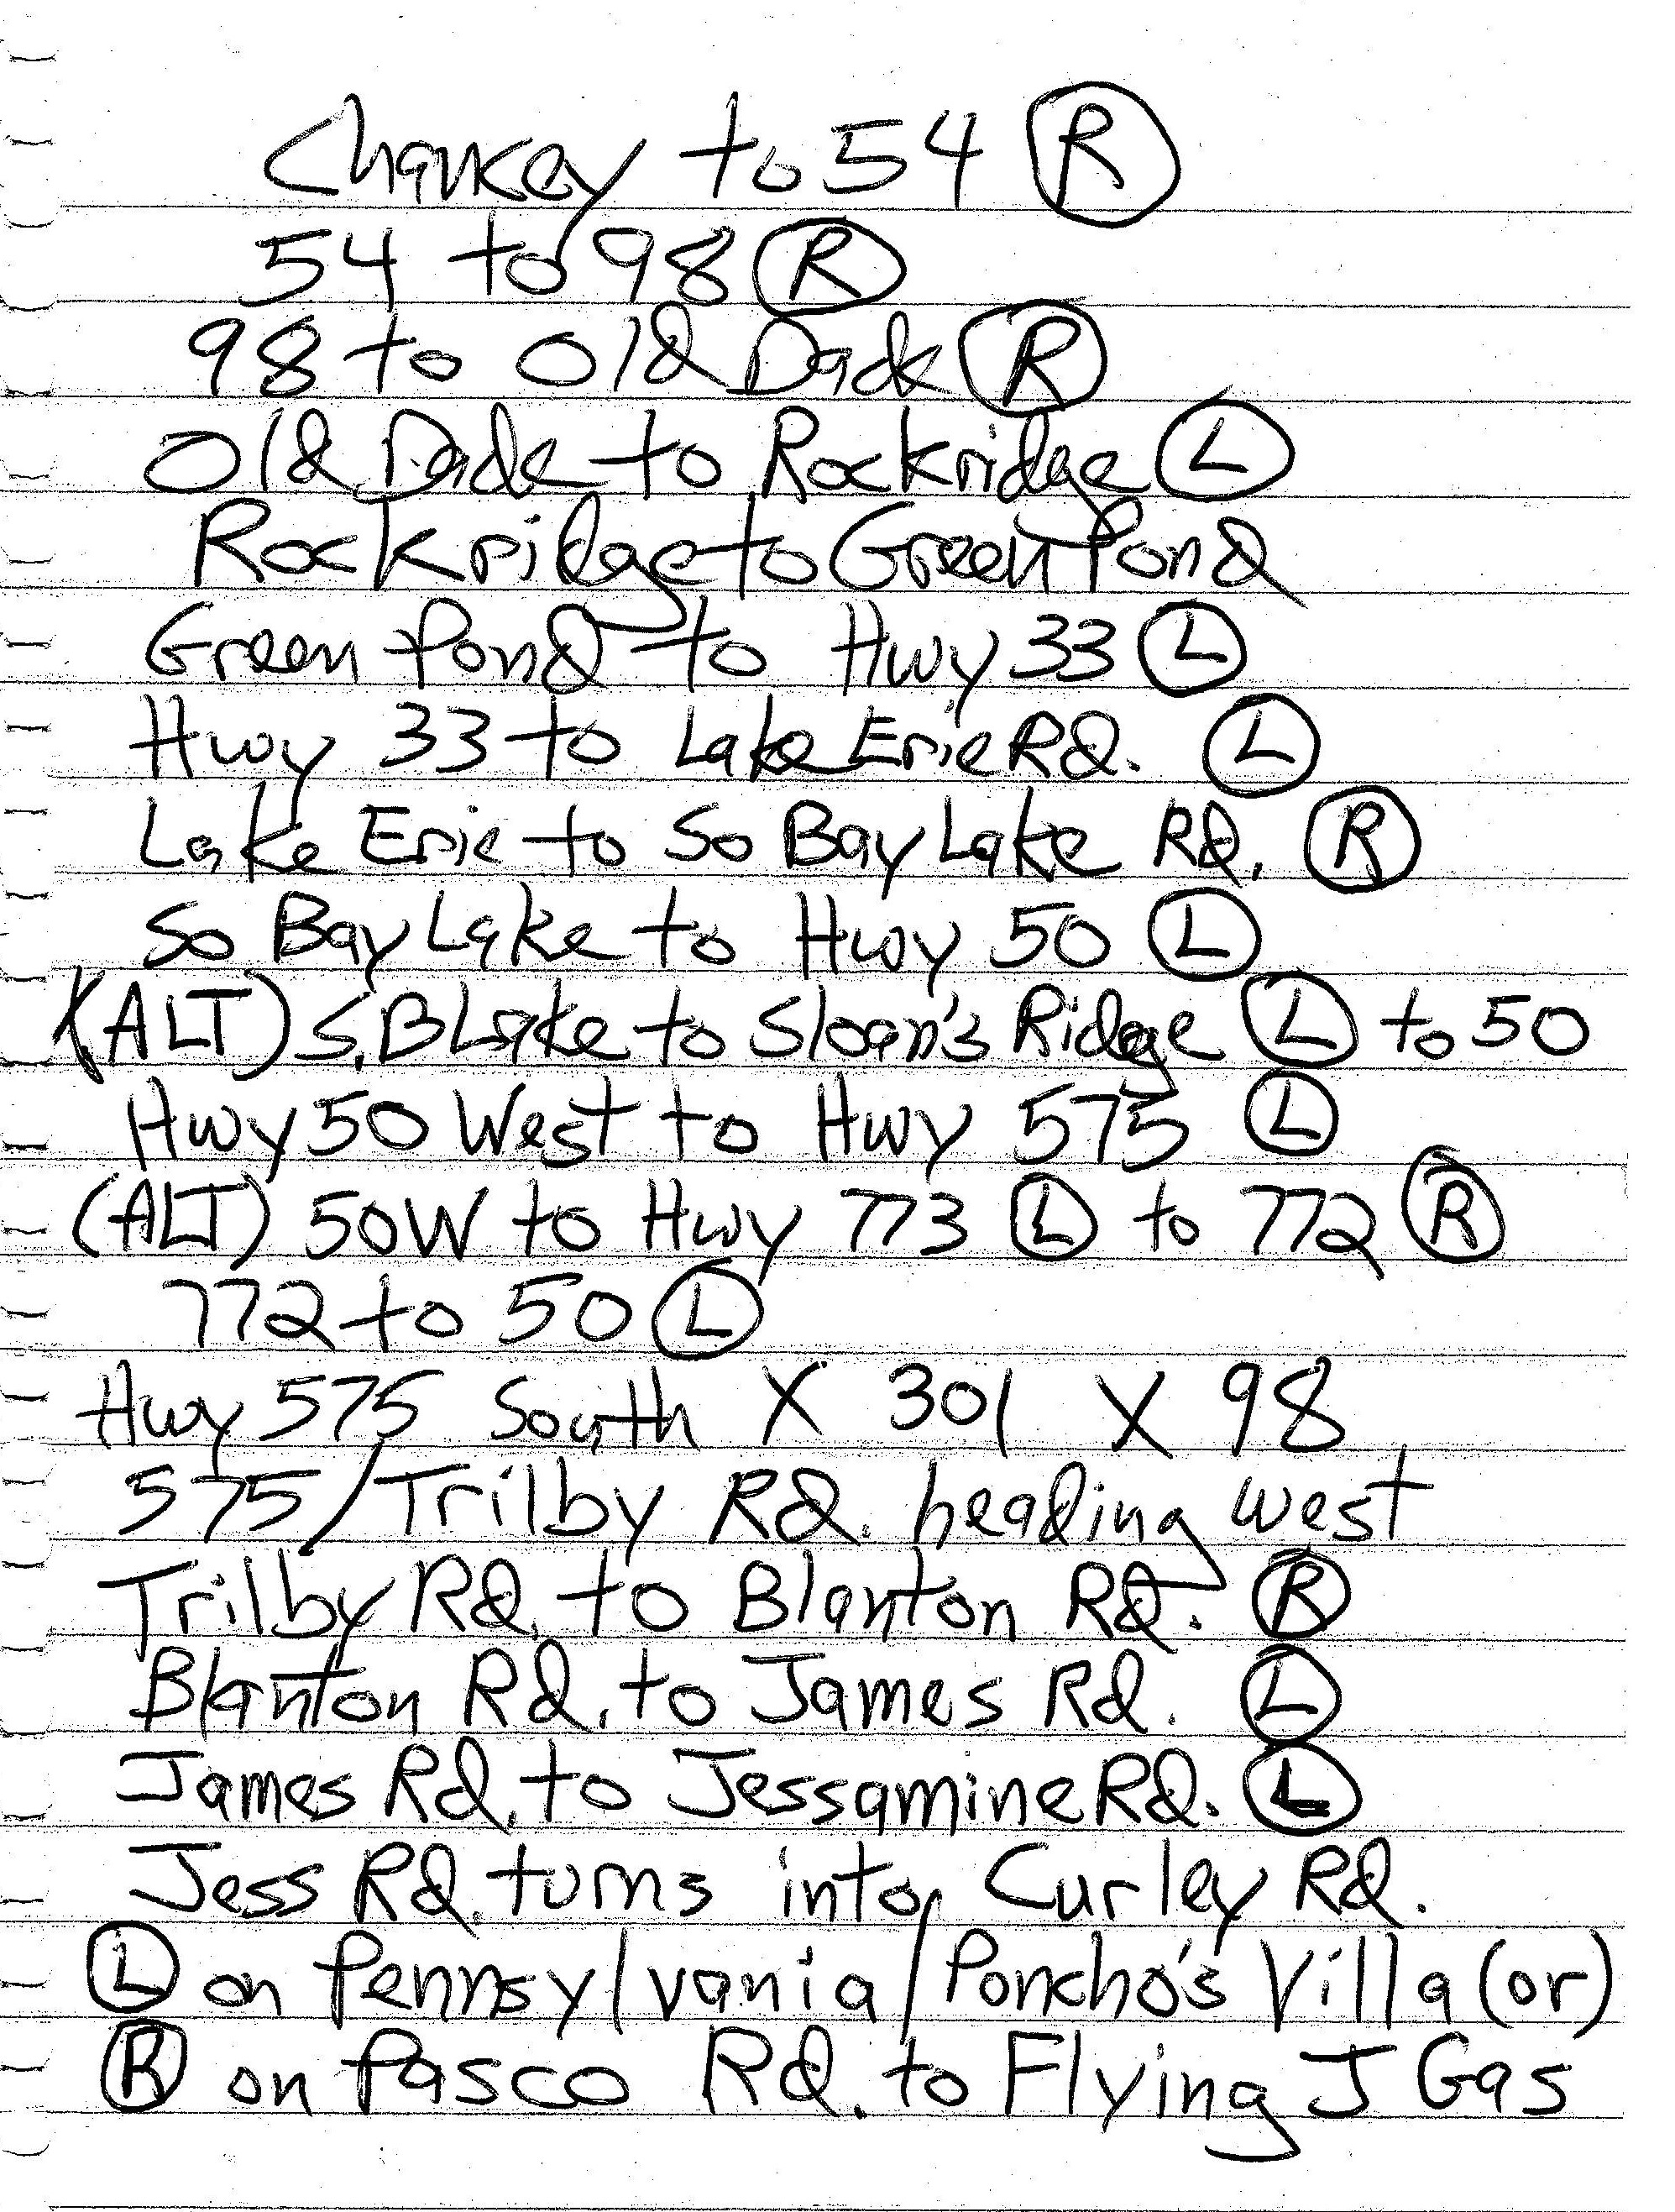 Chancey to 54 R
54 to 98 R
98 to Old Dade R
Old Dade to Rockridge L
Rockridge to Green Pond
Green Pond to Hwy 33 L
Hwy 33 to Lake Erie Rd. L
Lake Erie to So Bay Lake Rd. R
So Bay Lake to Hwy 50 L
(ALT) S.B Lake to Sloan's Ridge L to 50
Hwy 50 West to Hwy 575 L
(ALT) 50W to Hwy 773 L to 772 R
772 to 50 L
Hwy 575 South X 301 X 98
575/Trilby Rd. heading west
Trilby Rd. to Blanton Rd. R
Blanton Rd. to James Rd. L
James Rd. to Jessamine Rd. L
Jess Rd. turns into Curley Rd.
L on Pennsylvania/Poncho's Villa (or)
R on Pasco Rd. to Flying J Gas